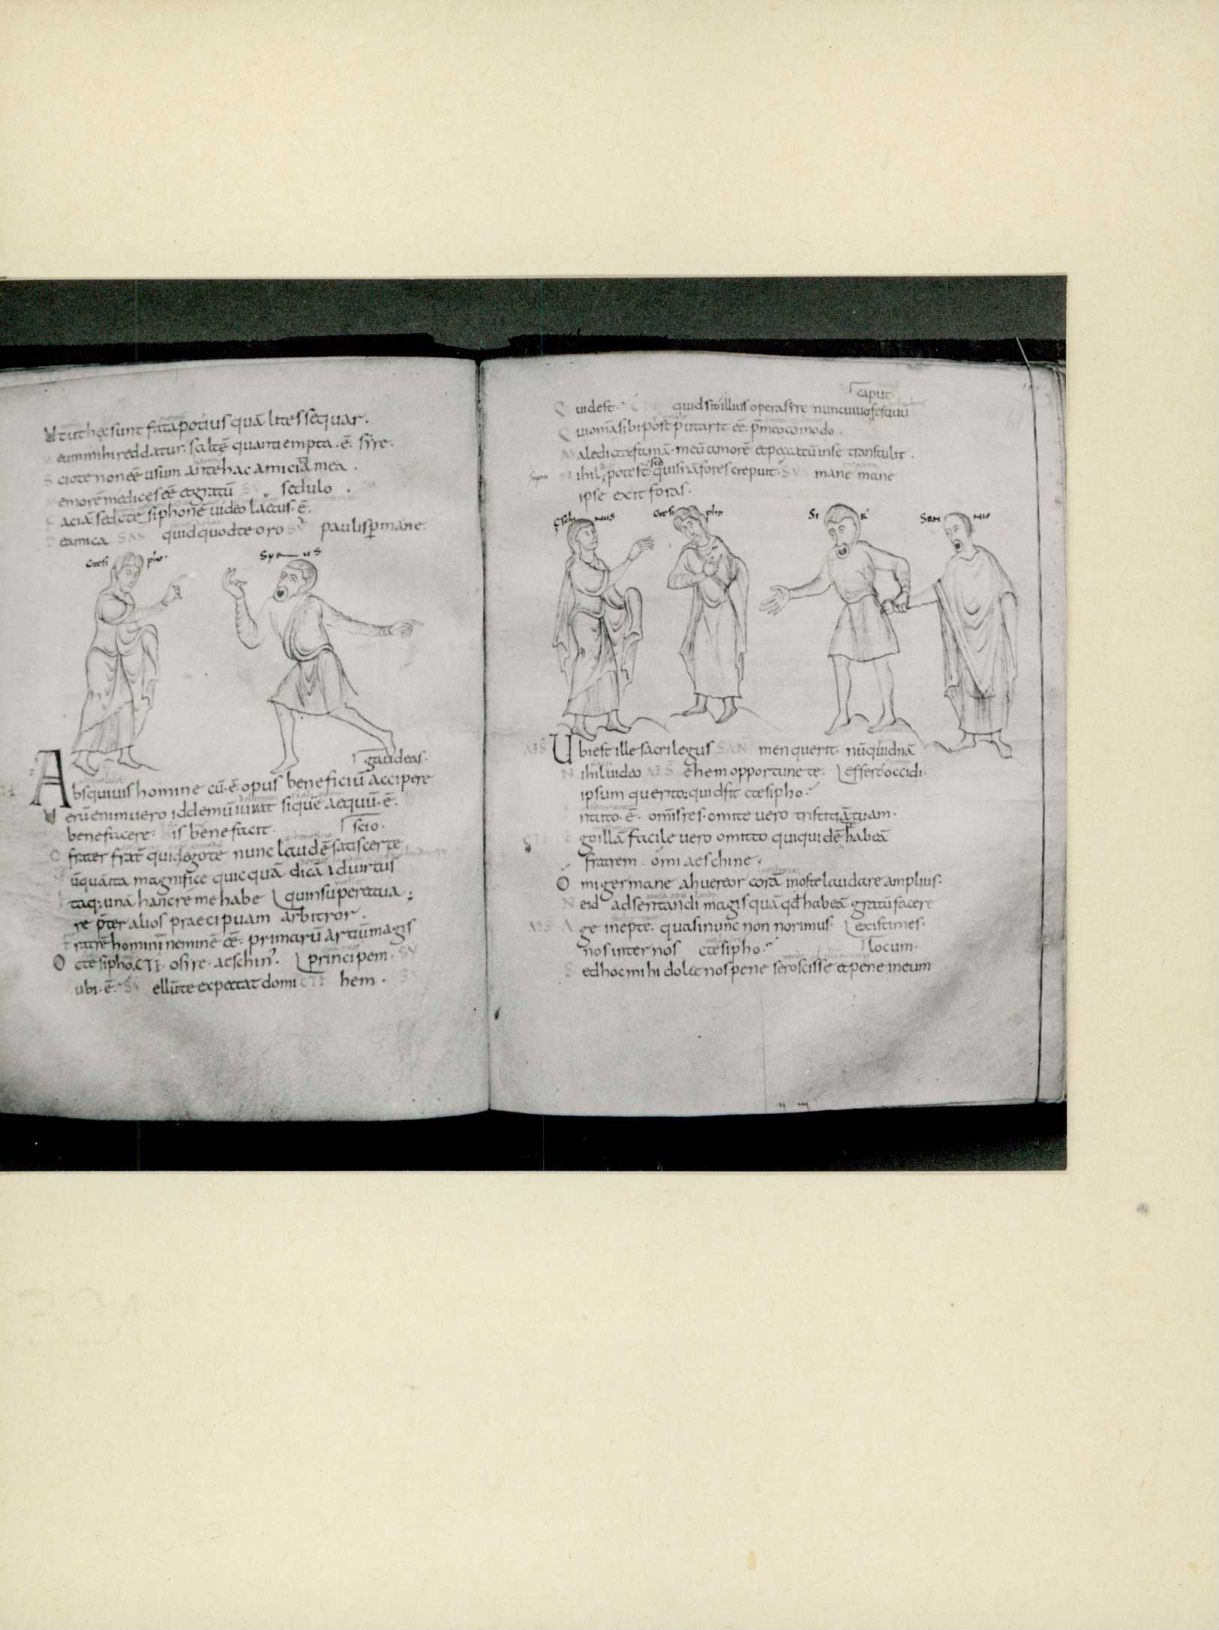 Ut tut hęc sunt facta potius quā lites sequar.
eummihi reddatur. saltē quanta empta. ē. syre.
Sciote non eē usum antehac amicitiā mea.
memorē me dices eē et gratū sedulo.
ctesiphonē uideo laetus. ē.
SAN quid quod te oro paulisp mane.
Ctesi pho. Syrus
gaudeas.
Absquiuis homine cū. ē. opus beneficiū accipere
Uerū enimuero id demū iuuat siquē aequū. ē.
benefacere. is bene facit. scio.
O frater frat̄ quid ego te nunc laudē satis certe
nūquā ita magnifice quicquā dicā id uirtus
Itaq; unā hanc rē me habe quin superet tua;
re p̄ter alios praecipuam arbitror.
Fratrē homini neminē eē. primarū artiū magis
O ctesipho. CTE. o syre. aeschin? principem. SY
ubi. ē. SY ellū te expectat domi CTE hem.
caput
Quid est. quid sit illius opera syre nunc uiuo festiuū
Qui omā sibi post putarit eē. p̄ meo comodo.
Maledicta famā. meū amorē et peccatū in se transtulit.
Nihil pote st̄. quisnā fores crepuit. SY mane mane
ipse exit foras.
Eschinus Ctesi pho SI R' SAN NIO
AES Ubi est ille sacrilegus SAN men querit. nū quidnā
Nihil uideo AES ehem opportune te. effert occidi
ipsum quero: quid fit ctesipho?
in tuto. ē. om̄is res. omite uero tristitiā tuam.
Ego illā facile uero omitto qui quidē te habeā
fratrem. o mi aeschine.
O mi germane ah uereor corā in os te laudare amplius.
Ne id adsentandi magis quā qd habeā gratū facere
AES Age inepte. quasi nunc non norimus. existimes.
nos inter nos ctesipho. locum.
Sed hoc mihi dolet nos pene sero scisse et pene in eum